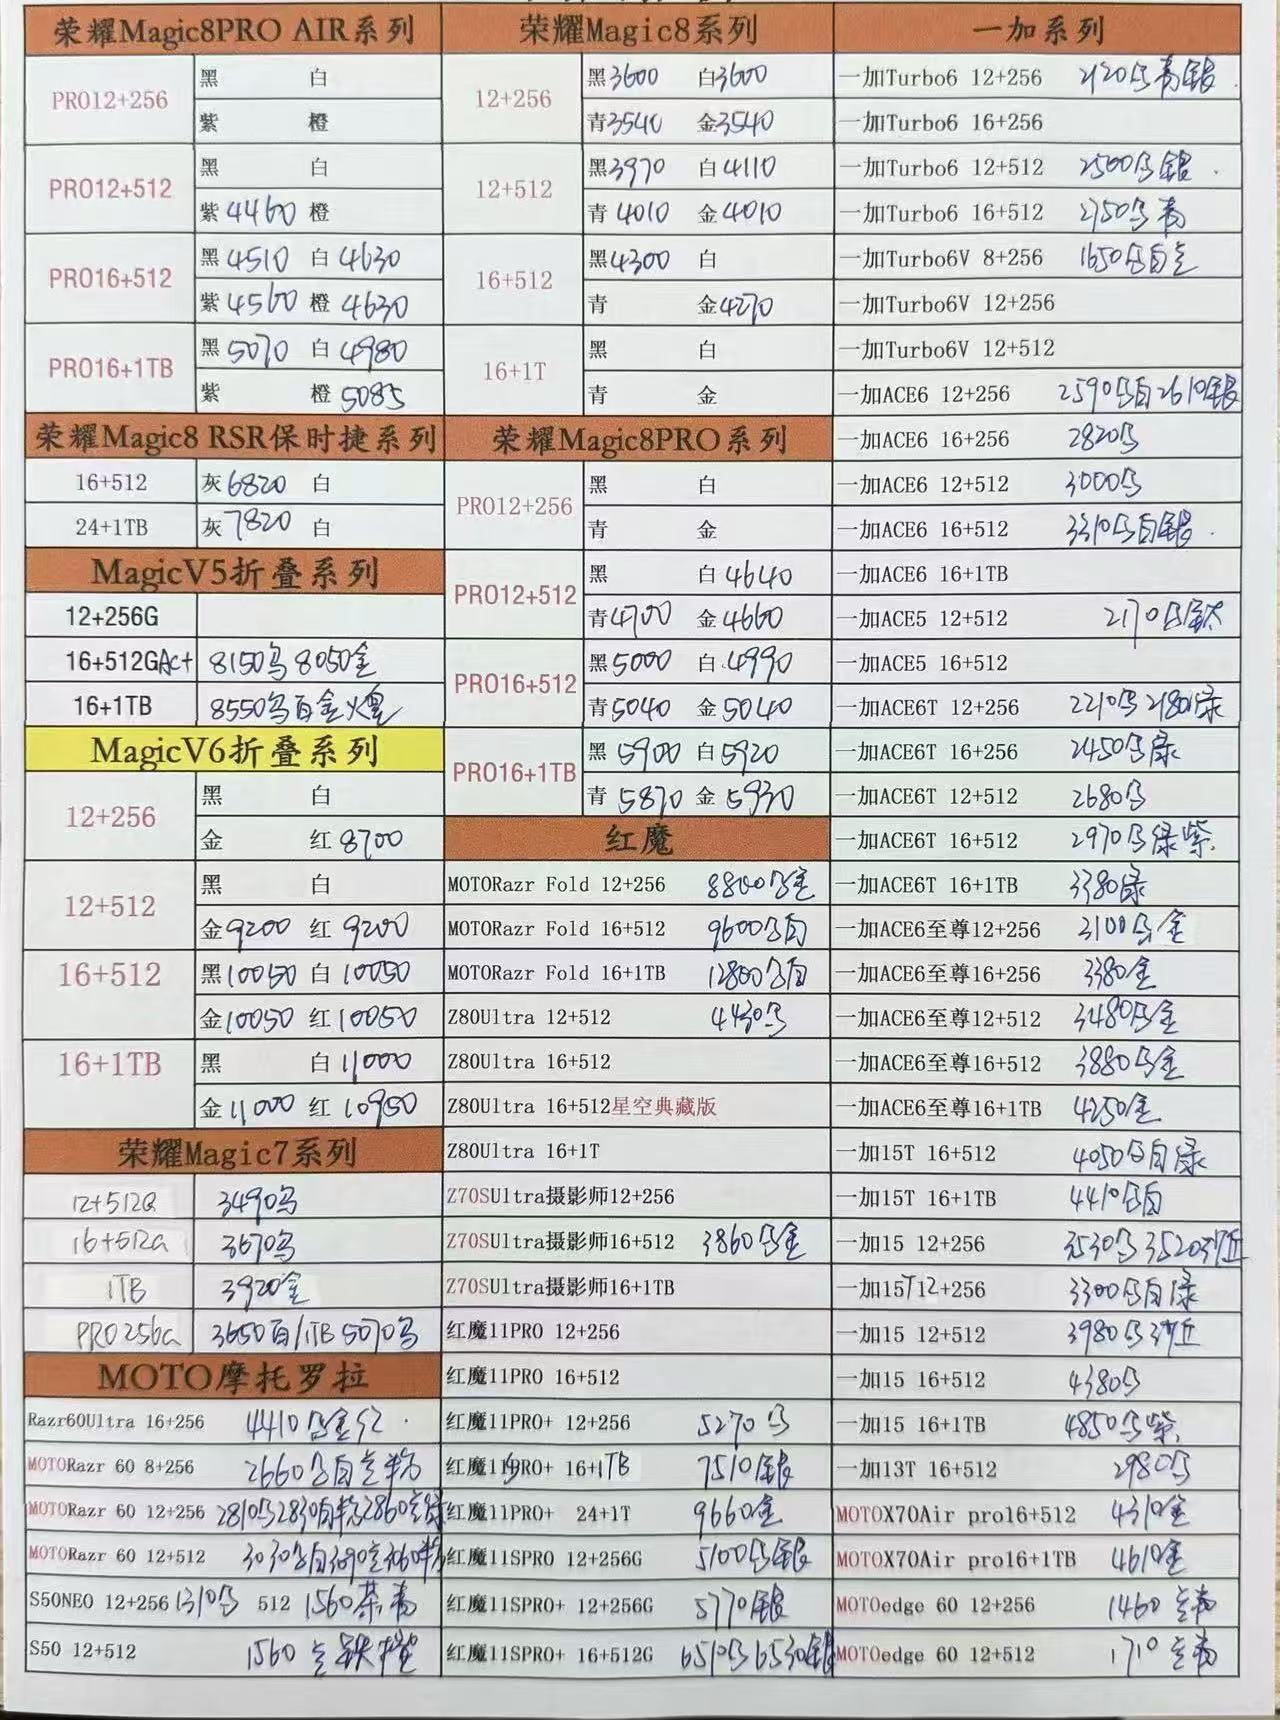 荣耀Magic8PRO AIR系列
PRO12+256
黑 白
紫 橙
PRO12+512
黑 白
紫4460 橙
PRO16+512
黑4510 白4630
紫4560 橙4630
PRO16+1TB
黑5070 白4980
紫 橙5085
荣耀Magic8 RSR保时捷系列
16+512 灰6820 白
24+1TB 灰7820 白
MagicV5折叠系列
12+256G
16+512G 8150乌 8050金
16+1TB 8550乌白金
MagicV6折叠系列
12+256
黑 白
金 红8700
12+512
黑 白
金9200 红9200
16+512
黑10050 白10050
金10050 红10050
16+1TB
黑 白11000
金11000 红10950
荣耀Magic7系列
12+512G 3490乌
16+512G 3670乌
1TB 3920金
PRO256G 3650白/1TB 5070乌
MOTO摩托罗拉
Razr60Ultra 16+256 4410乌金红
MOTORazr 60 8+256 2660乌白
MOTORazr 60 12+256 2810乌2830白
MOTORazr 60 12+512 3030乌白
S50NEO 12+256 1310乌 512 1560茶青
S50 12+512 1560
荣耀Magic8系列
12+256
黑3600 白3600
青3540 金3540
12+512
黑3970 白4110
青4010 金4010
16+512
黑4300 白
青 金4270
16+1T
黑 白
青 金
荣耀Magic8PRO系列
PRO12+256
黑 白
青 金
PRO12+512
黑 白4640
青4700 金4660
PRO16+512
黑5000 白4990
青5040 金5040
PRO16+1TB
黑5900 白5920
青5870 金5930
红魔
MOTORazr Fold 12+256 8800乌金
MOTORazr Fold 16+512 9600乌白
MOTORazr Fold 16+1TB 12800乌白
Z80Ultra 12+512 4430乌
Z80Ultra 16+512
Z80Ultra 16+512星空典藏版
Z80Ultra 16+1T
Z70SUltra摄影师12+256
Z70SUltra摄影师16+512 3860乌金
Z70SUltra摄影师16+1TB
红魔11PRO 12+256
红魔11PRO 16+512
红魔11PRO+ 12+256 5270乌
红魔11PRO+ 16+1TB 7510银
红魔11PRO+ 24+1T 9660金
红魔11SPRO 12+256G 5100乌银
红魔11SPRO+ 12+256G 5770银
红魔11SPRO+ 16+512G 6510乌6530银
一加系列
一加Turbo6 12+256 2120乌青银
一加Turbo6 16+256
一加Turbo6 12+512 2500乌银
一加Turbo6 16+512 2750乌青
一加Turbo6V 8+256 1650乌白
一加Turbo6V 12+256
一加Turbo6V 12+512
一加ACE6 12+256 2590乌白2610银
一加ACE6 16+256 2820乌
一加ACE6 12+512 3000乌
一加ACE6 16+512 3310乌白银
一加ACE6 16+1TB
一加ACE5 12+512 2170乌钛
一加ACE5 16+512
一加ACE6T 12+256 2210乌2180绿
一加ACE6T 16+256 2450乌绿
一加ACE6T 12+512 2680乌
一加ACE6T 16+512 2970乌绿紫
一加ACE6T 16+1TB 3380绿
一加ACE6至尊12+256 3100乌金
一加ACE6至尊16+256 3380金
一加ACE6至尊12+512 3480乌金
一加ACE6至尊16+512 3880乌金
一加ACE6至尊16+1TB 4250金
一加15T 16+512 4050乌白绿
一加15T 16+1TB 4410乌白
一加15 12+256 3530乌3520沙丘
一加15T12+256 3300乌白绿
一加15 12+512 3980乌沙丘
一加15 16+512 4380乌
一加15 16+1TB 4850乌紫
一加13T 16+512 2980乌
MOTOX70Air pro16+512 4310金
MOTOX70Air pro16+1TB 4610金
MOTOedge 60 12+256 1460
MOTOedge 60 12+512 1710